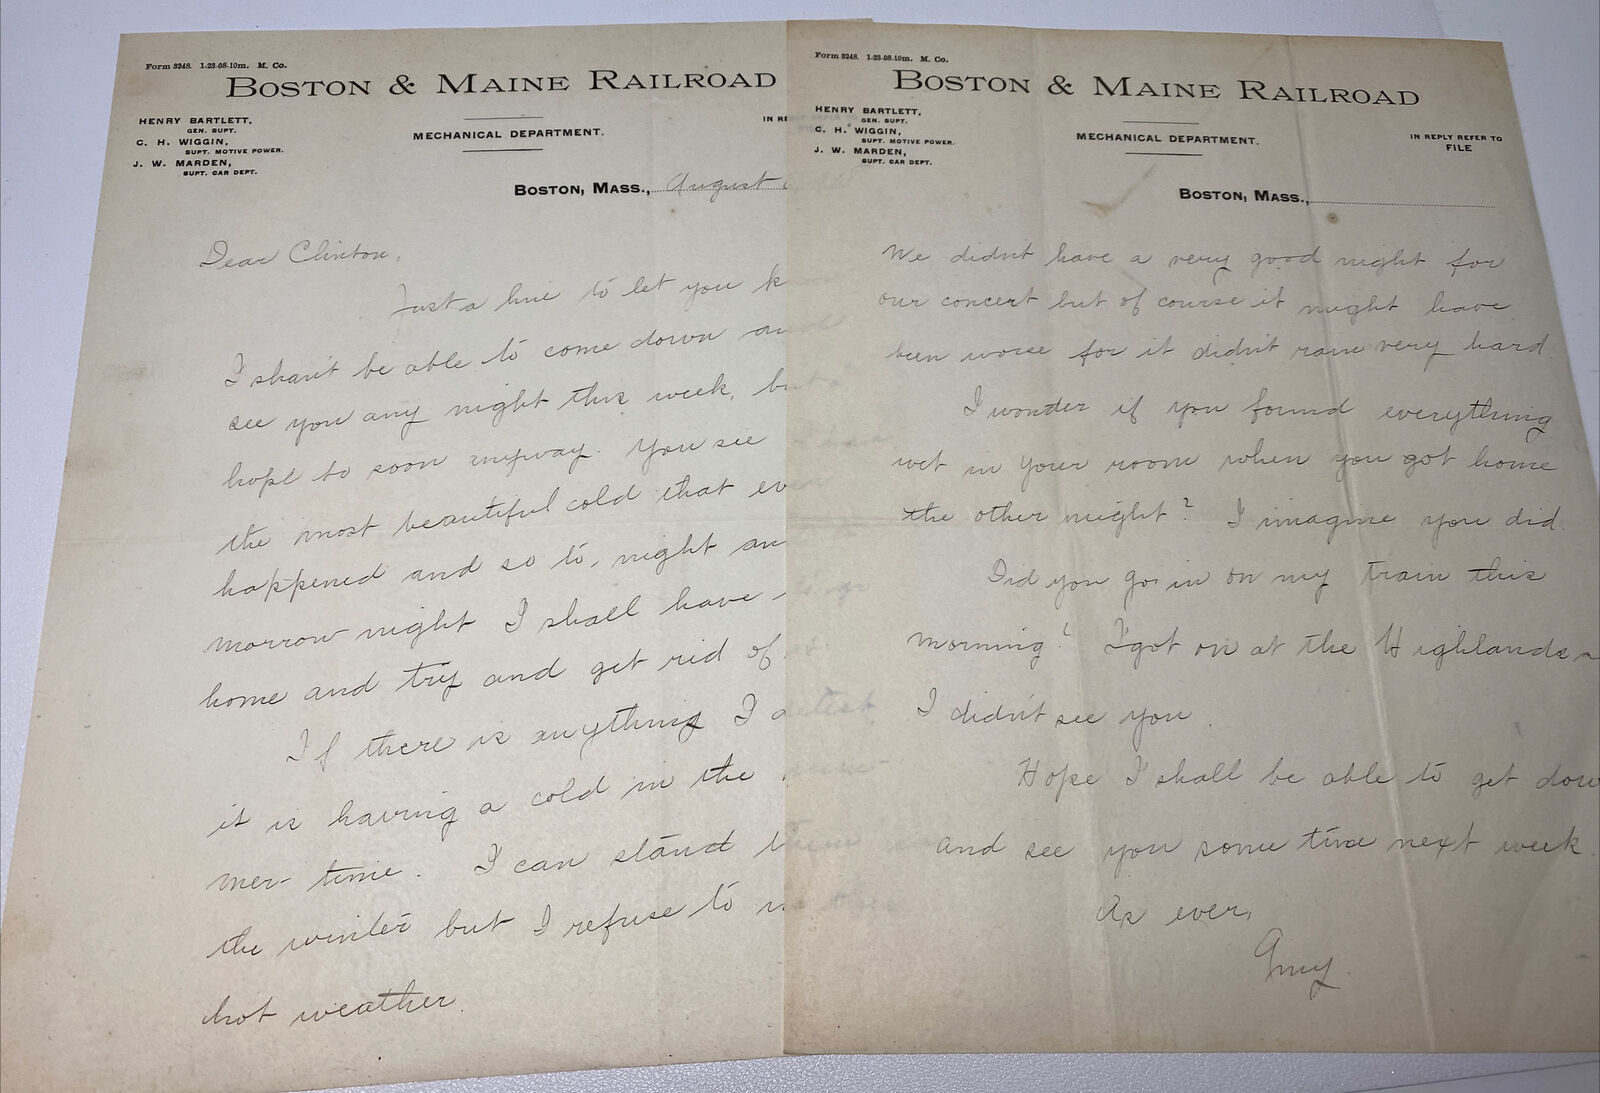 Form 3248. 1-23-08-10m. M. Co.
BOSTON & MAINE RAILROAD
HENRY BARTLETT,
GEN. SUPT.
C. H. WIGGIN,
SUPT. MOTIVE POWER.
J. W. MARDEN,
SUPT. CAR DEPT.
MECHANICAL DEPARTMENT.
IN RE
BOSTON, MASS., August
Dear Clinton,
Just a line to let you k
I shan't be able to come down an
see you any night this week, bu
hope to soon anyway. You see
the most beautiful cold that ev
happened and so to, night an
morrow night I shall have
home and try and get rid of
If there is anything I
it is having a cold in the
mer- time. I can stand t
the winter but I refuse to
hot weather.
Form 3248. 1-23-08-10m. M. Co.
BOSTON & MAINE RAILROAD
HENRY BARTLETT,
GEN. SUPT.
C. H. WIGGIN,
SUPT. MOTIVE POWER.
J. W. MARDEN,
SUPT. CAR DEPT.
MECHANICAL DEPARTMENT.
IN REPLY REFER TO
FILE
BOSTON, MASS.,
We didn't have a very good night for
our concert but of course it might have
been worse for it didn't rain very hard.
I wonder if you found everything
wet in your room when you got home
the other night? I imagine you did.
Did you go in on my train this
morning? I got on at the Highlands
I didn't see you.
Hope I shall be able to get dow
and see you some time next week.
As ever,
Amy.